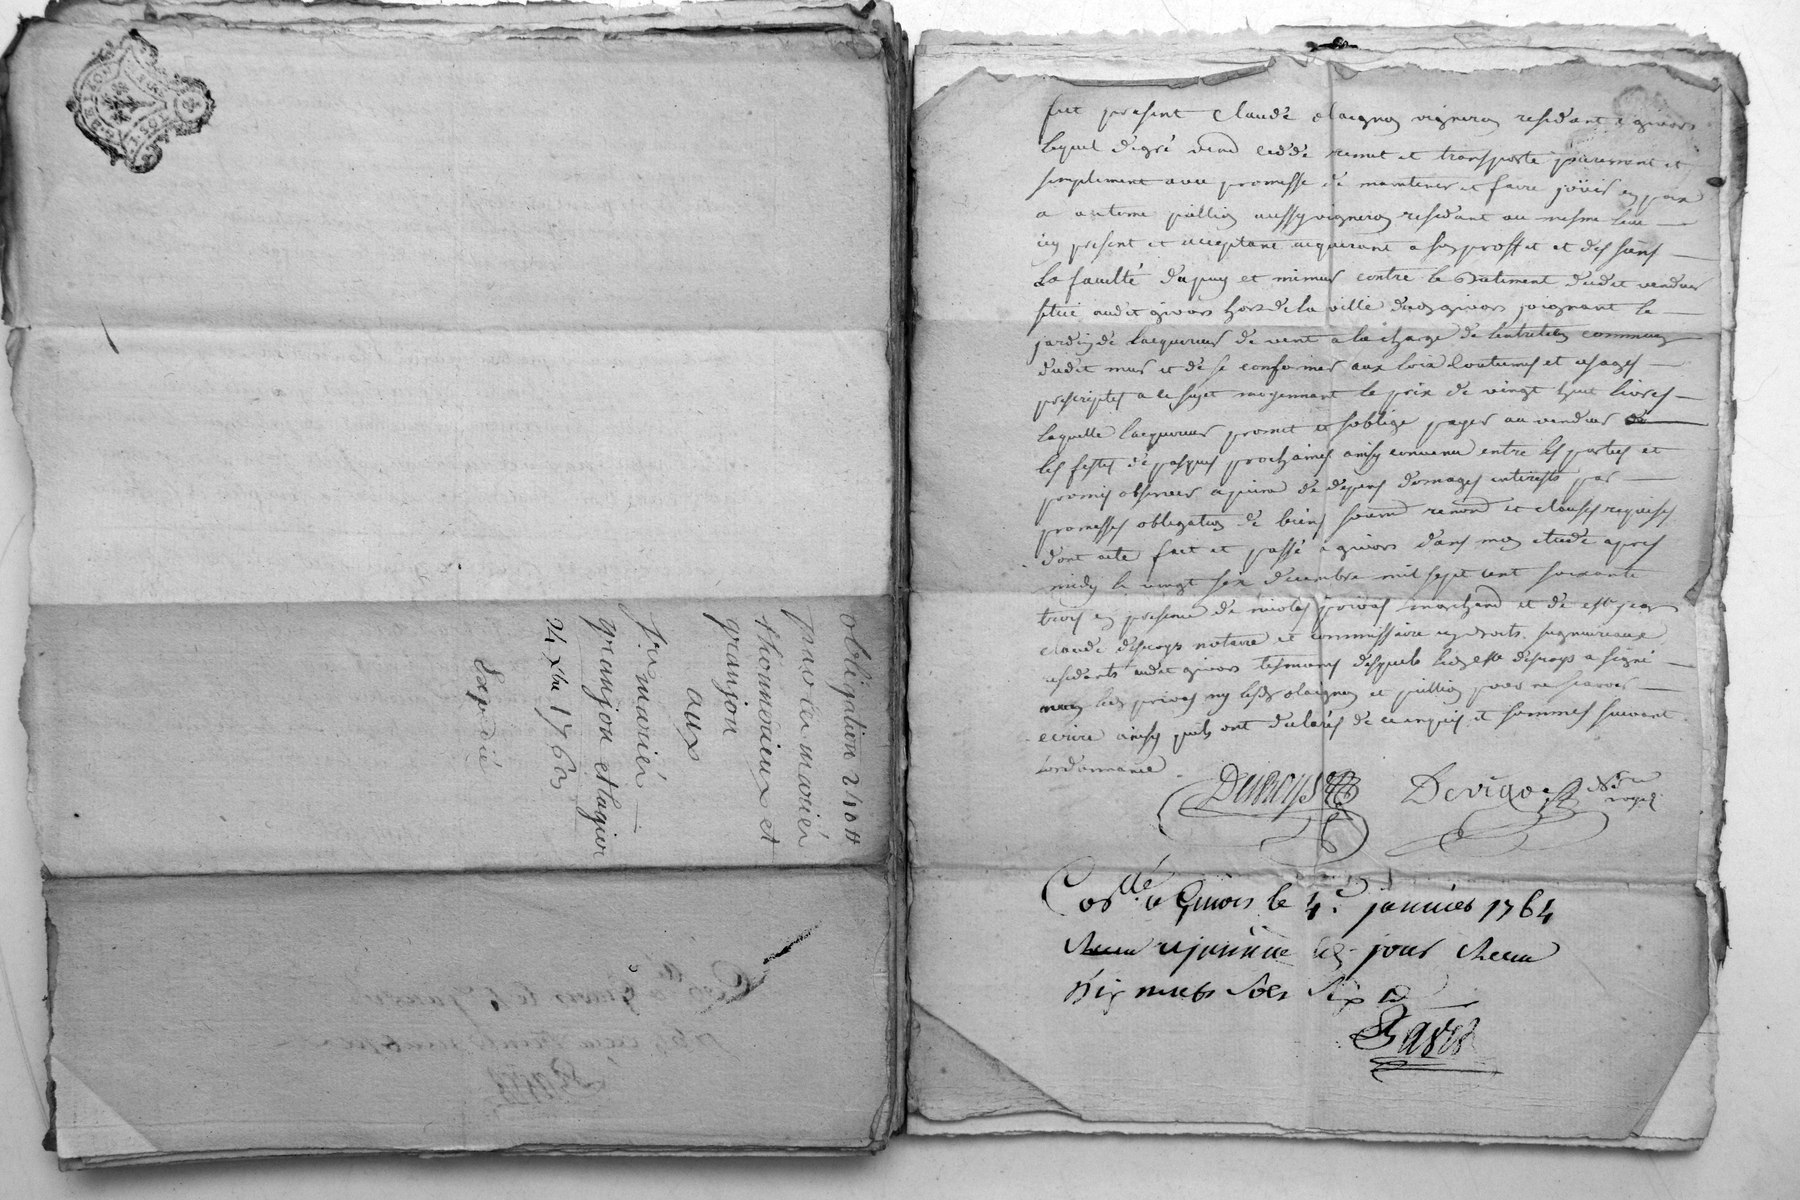 obligation 240 tt
par les mariés
thonnerieux et
granjon
aux
sr mariés
granjon et lagier
24 xbre 1763
Expedié
fut present Claude olaignon vigneron residant a givors
lequel de gré vend cedde remet et transporte purement et
simplement avec promesse de maintenir et faire joüir en paix
a antoine pullion aussy vigneron residant au mesme lieu
icy present et acceptant acquerant a son proffit et des siens
La faculté dapuy et mimur contre le Batiment dudit vendeur
situé audit givors hors de la ville dudt givors joignant le
jardin de lacquereur de vent a la charge de lentretien commun
dudit mur et de se conformer aux loix Coutumes et usages
prescriptes a ce sujet moyennant le prix de vingt huit livres
laquelle lacquereur promet et soblige payer au vendeur
les festes de pasques prochaines ainsy convenu entre les parties et
promis observer a peine de depens domages interests par
promesses obligation de biens soumi renond et clauses requises
dont acte fait et passé a givors dans mon etude apres
midy le vingt six decembre mil sept cent soixante
trois en presence de nicolas privas marchand et de est jean
claude desroys notaire et commissaire en droits seigneuriaux
residants audit givors tesmoins desquels led desroys a signé
non led privas ny lesds olaignon et pullion pour ne scavoir
ecrire ainsy quils ont declarés de ce enquis et sommés suivant
lordonnance
Desroys Devigne Nre royal
Conllé a Givors le 4e janvier 1764
receu
dix neufs sols six d